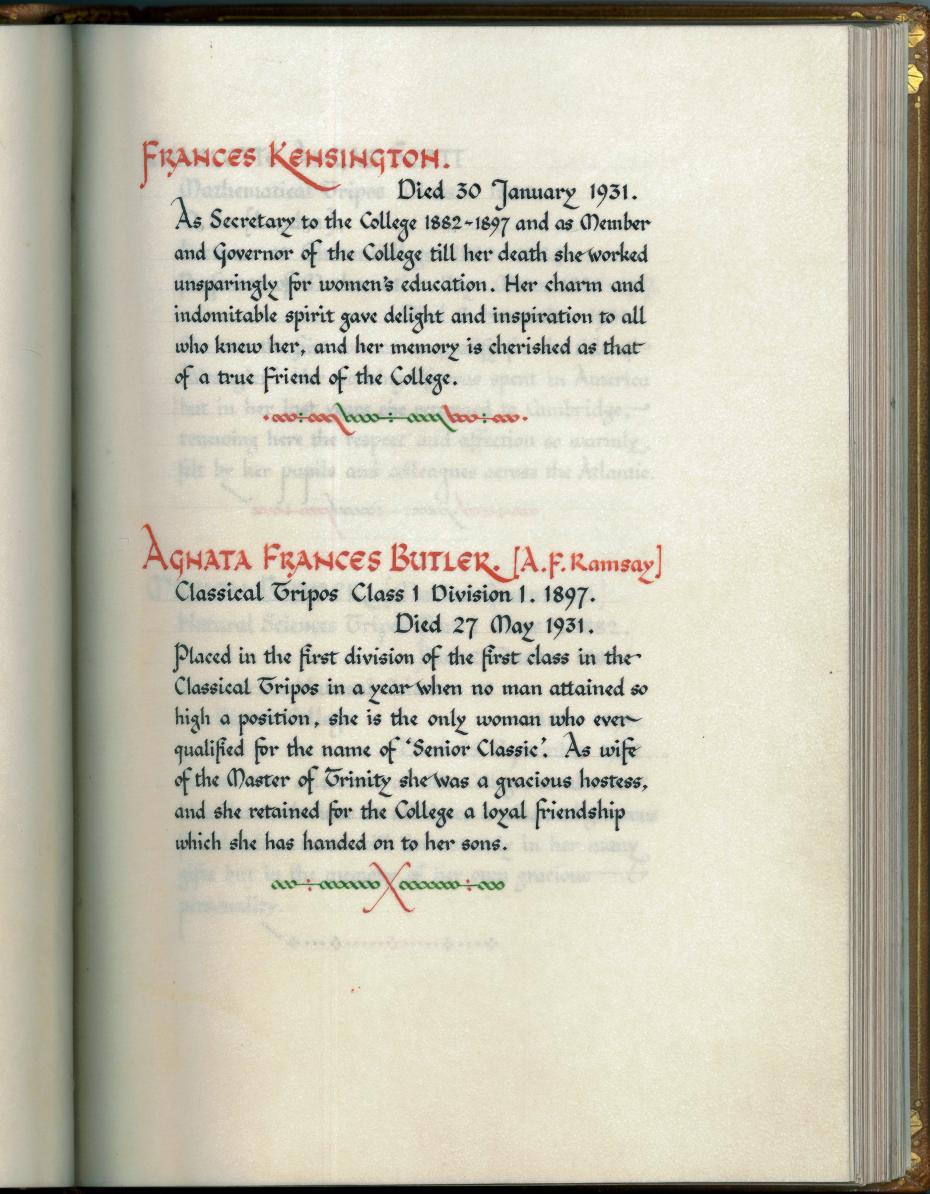 Frances Kensington.
Died 30 January 1931.
As Secretary to the College 1882-1897 and as Member
and Governor of the College till her death she worked
unsparingly for women's education. Her charm and
indomitable spirit gave delight and inspiration to all
who knew her, and her memory is cherished as that
of a true Friend of the College.
Agnata Frances Butler. [A.F. Ramsay]
Classical Tripos Class 1 Division 1. 1897.
Died 27 May 1931.
Placed in the first division of the first class in the
Classical Tripos in a year when no man attained so
high a position, she is the only woman who ever
qualified for the name of 'Senior Classic'. As wife
of the Master of Trinity she was a gracious hostess,
and she retained for the College a loyal friendship
which she has handed on to her sons.